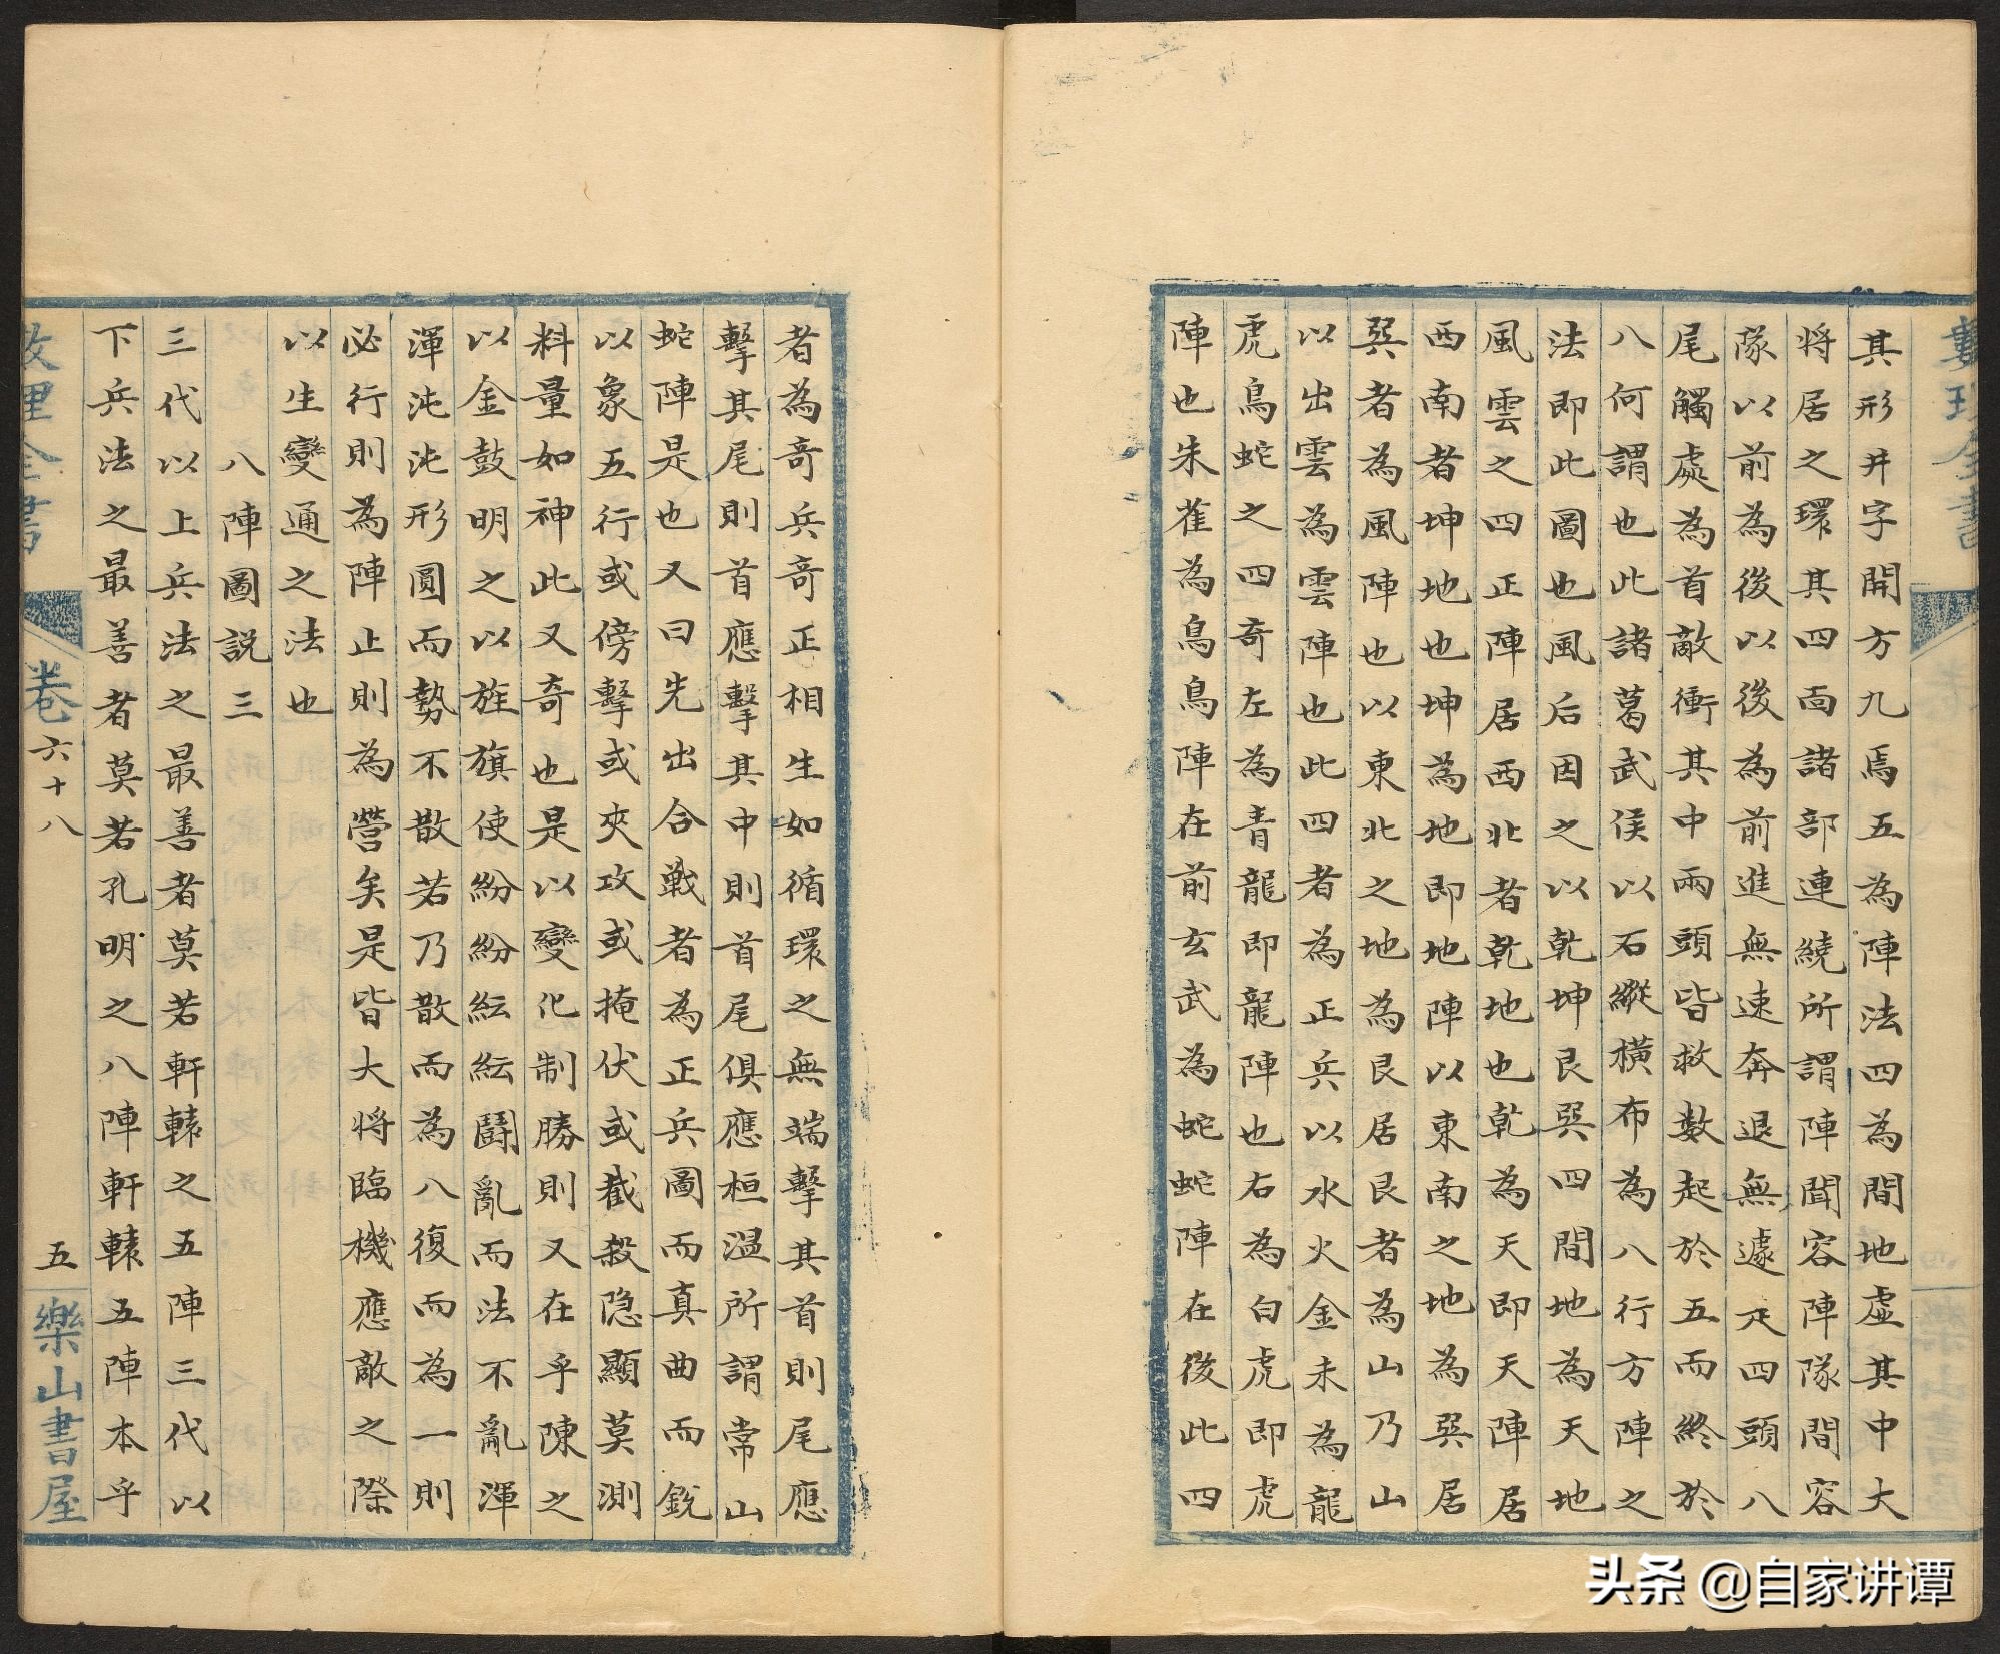 婁理全書
其形井字開方九焉五為陣法四為間地虛其中大
将居之環其四面諸部連繞所謂陣聞容陣隊間容
隊以前為後以後為前進無速奔退無遽疋四頭八
尾觸處為首敵衝其中兩頭皆救數起於五而終於
八何謂也此諸葛武侯以石縱橫布為八行方陣之
法即此圖也風后因之以乾坤艮巽四間地為天地
風雲之四正陣居西北者乾地也乾為天即天陣居
西南者坤地也坤為地即地陣以東南之地為巽居
巽者為風陣也以東北之地為艮居艮者為山乃山
以出雲為雲陣也此四者為正兵以水火金未為龍
虎鳥蛇之四奇左為青龍即龍陣也右為白虎即虎
陣也朱雀為鳥鳥陣在前玄武為蛇蛇陣在後此四
者為奇兵奇正相生如循環之無端擊其首則尾應
擊其尾則首應擊其中則首尾俱應桓溫所謂常山
蛇陣是也又曰先出合戰者為正兵圖而真曲而銳
以象五行或傍擊或夾攻或掩伏或截殺隐顯莫測
料量如神此又奇也是以變化制勝則又在乎陳之
以金鼓明之以旌旗使紛紛紜紜鬪亂而法不亂渾
渾沌沌形圓而勢不散若乃散而為八復而為一則
必行則為陣止則為營矣是皆大將臨機應敵之際
以生變通之法也
八陣圖説三
三代以上兵法之最善者莫若軒轅之五陣三代以
下兵法之最善者莫若孔明之八陣軒轅五陣本乎
數理全書 卷六十八 五 樂山書屋
头条 @自家讲谭